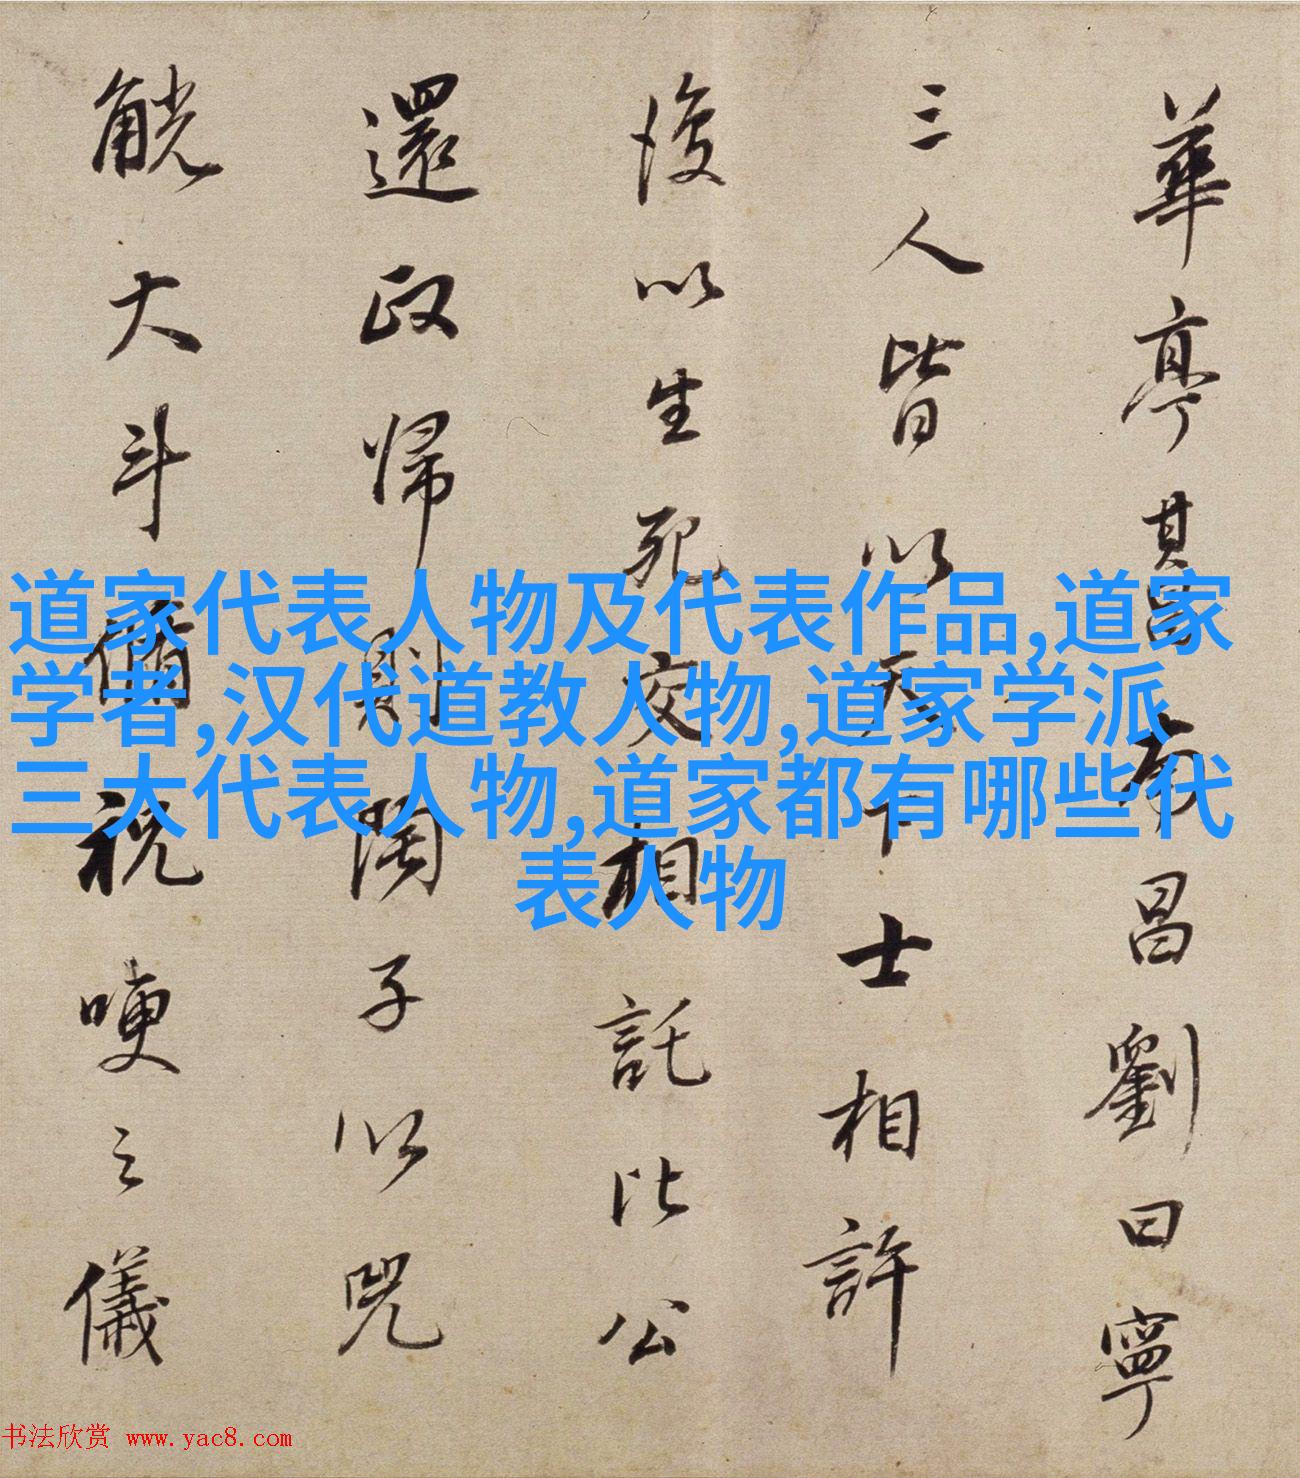 華亭其昌南昌劉曰寧
三人皆以天下士相許
後以生死交相託比公
還政歸則陶子以兕
觥大斗脩祝哽之儀
道家代表人物及代表作品,道家
学者,汉代道教人物,道家学派
三大代表人物,道家都有哪些代
表人物
书法欣赏 www.yac8.com